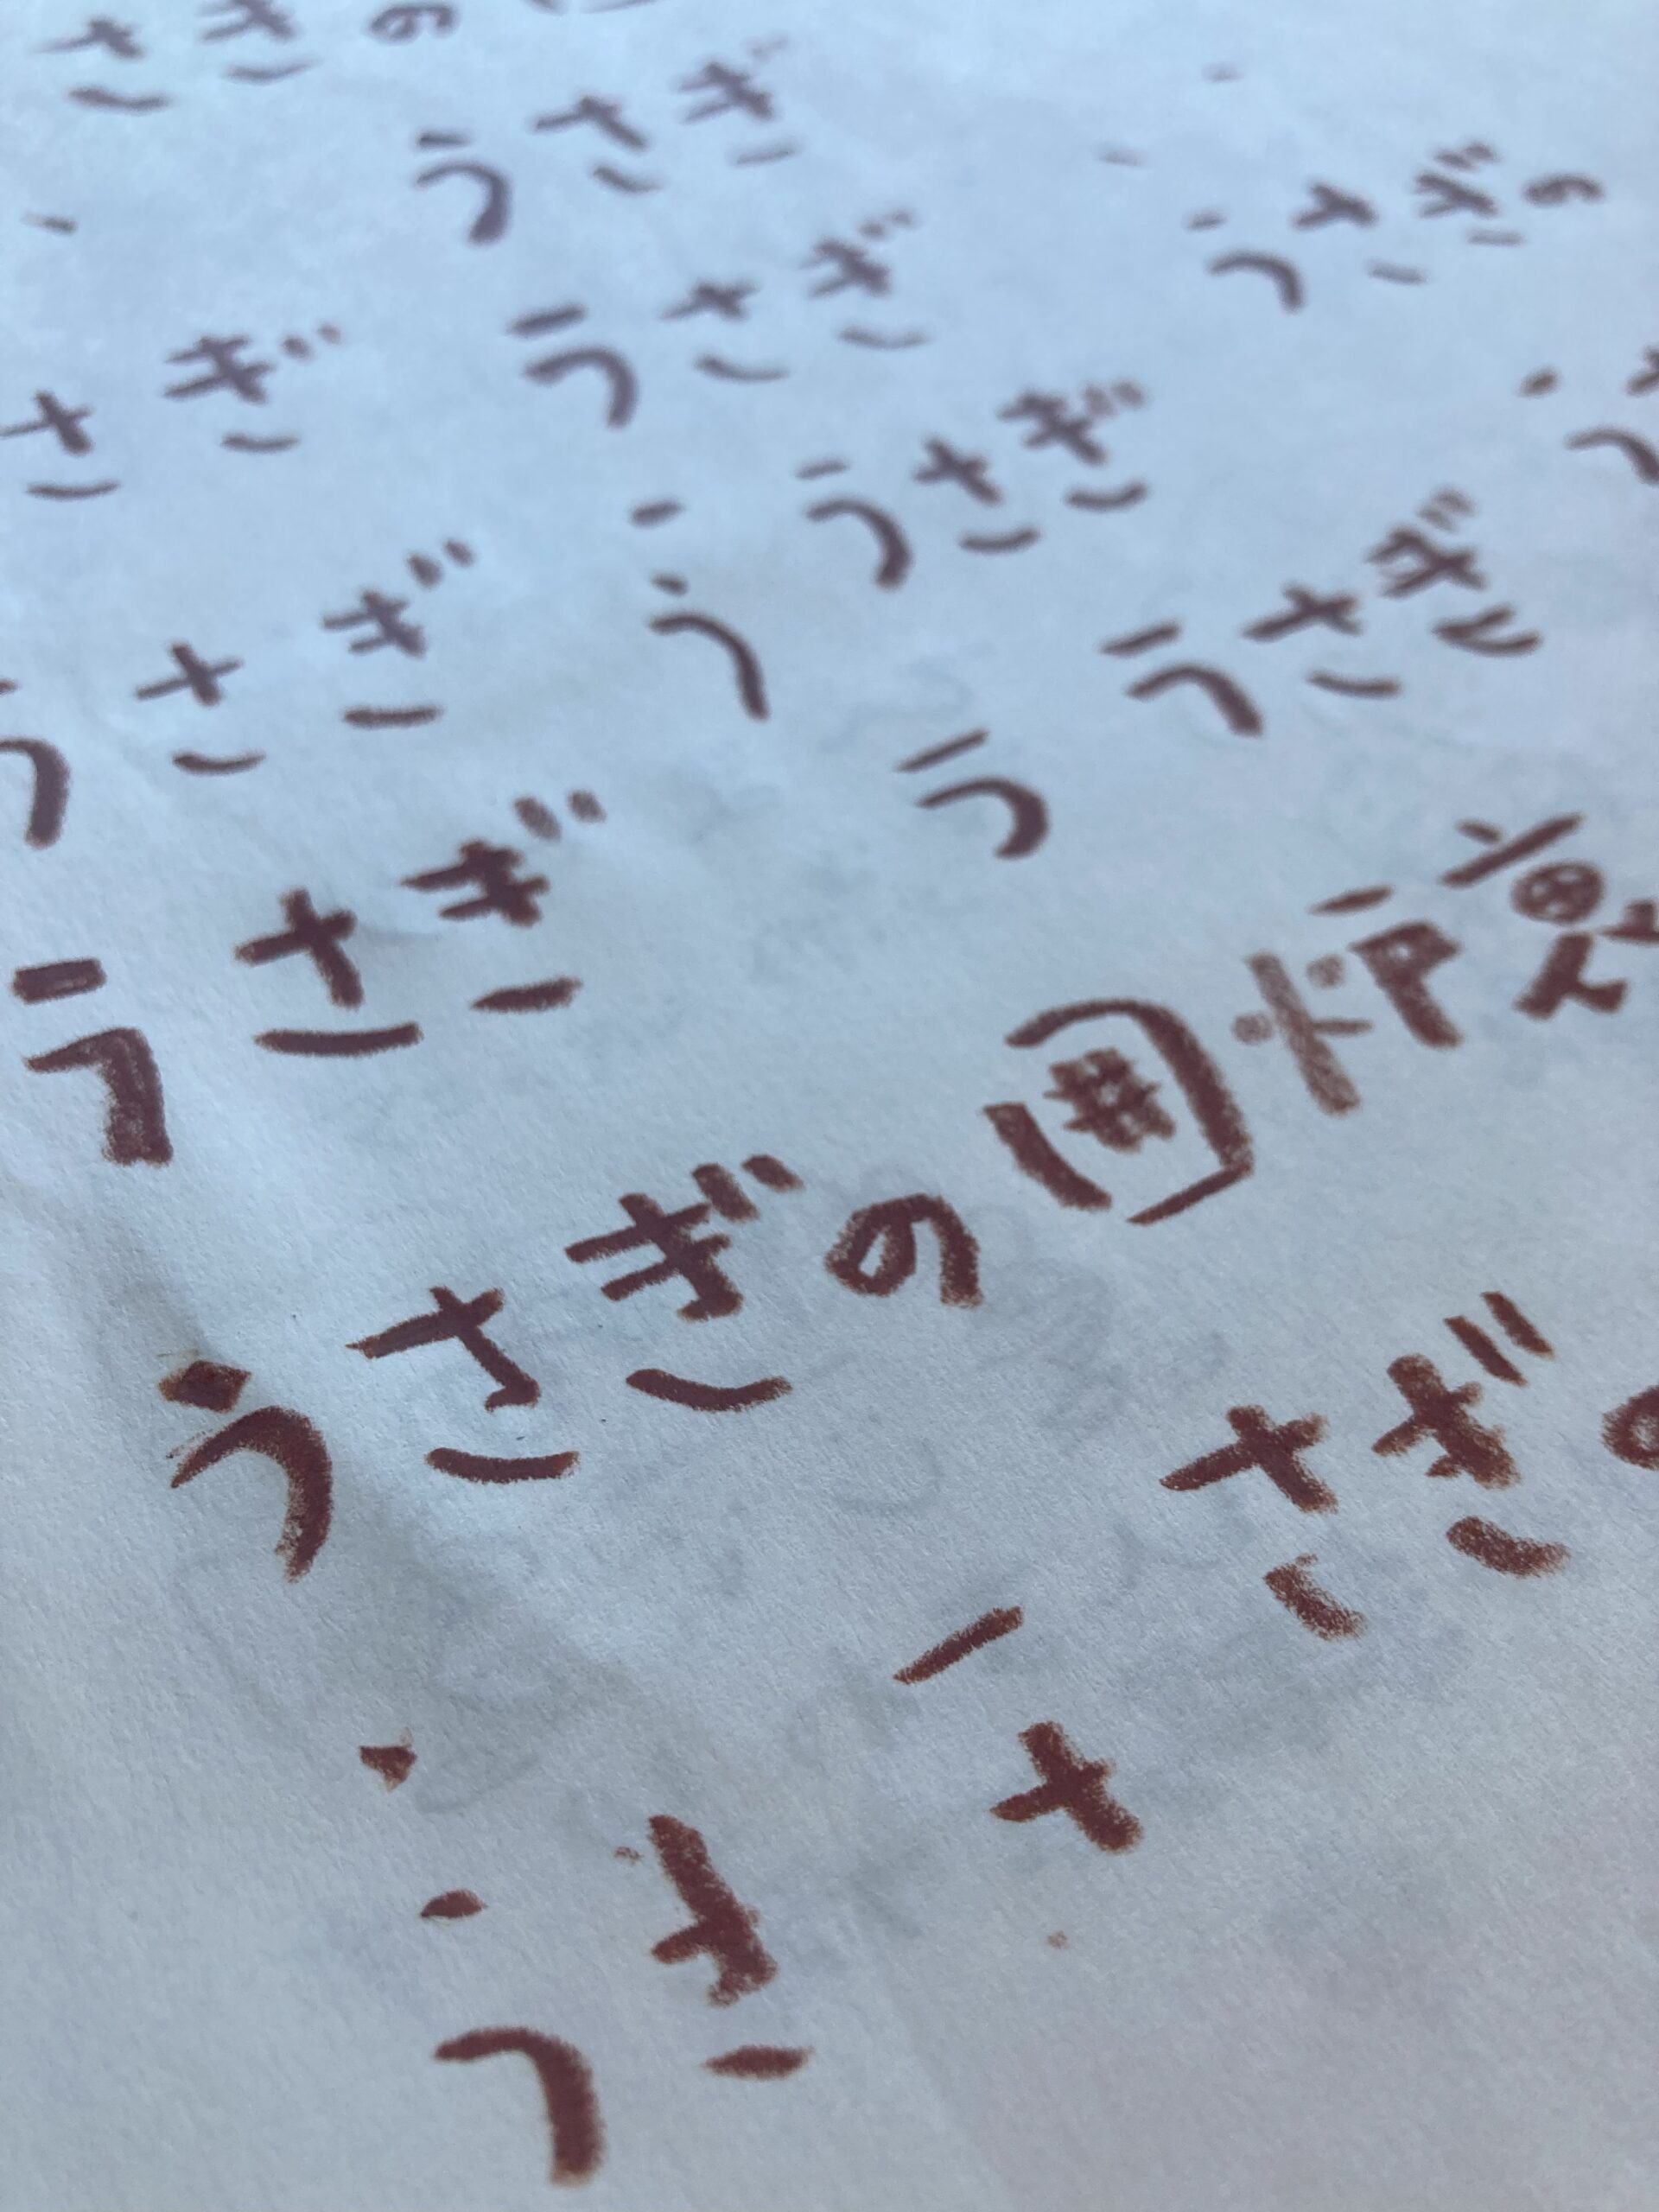 さきの
うさぎ
うさぎの
さぎ
うさぎ
うさぎ
う
うさぎ
うさぎ
う
うさぎ
うさぎの囲炉裏
さぎの
さ
う